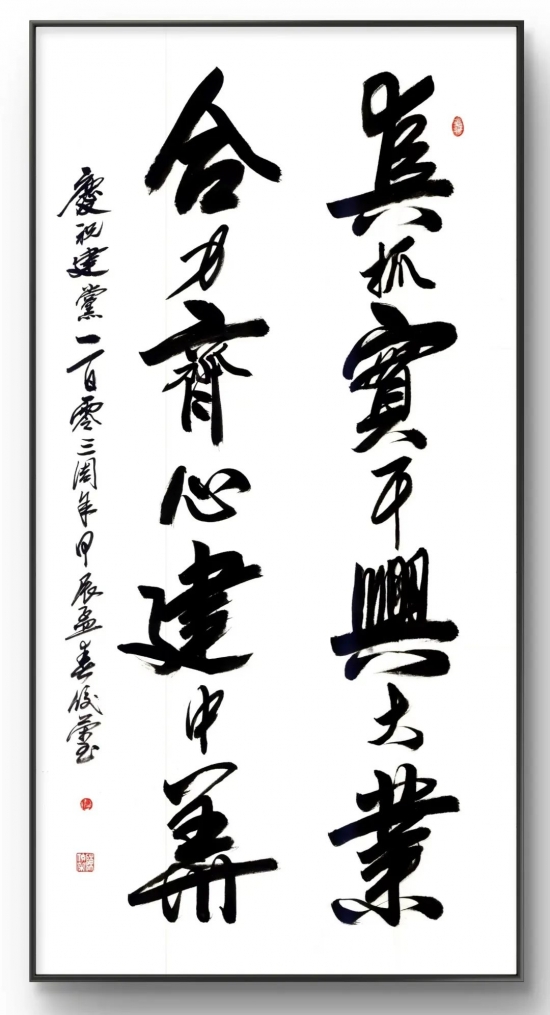 真抓實干興大業
合力齊心建中華
慶祝建黨一百零三周年甲辰孟春俊瑩